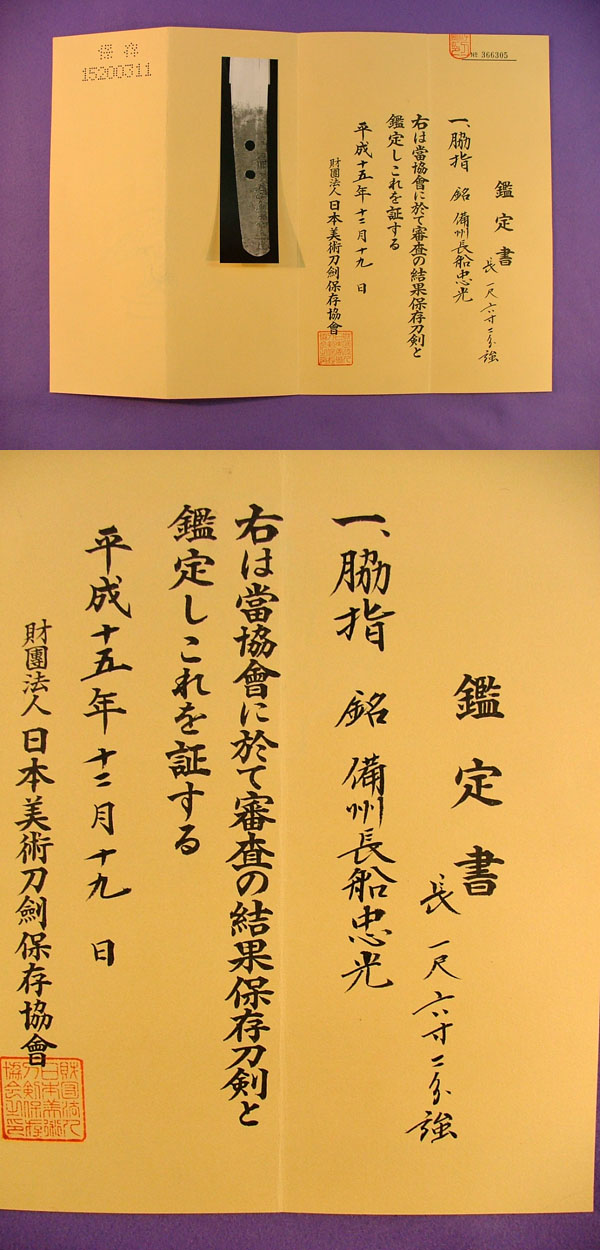 № 366305
鑑定書
長 一尺六寸二分強
一、脇指 銘 備州長船忠光
右は當協會に於て審査の結果保存刀剣と
鑑定しこれを証する
平成十五年十二月十九日
財團法人日本美術刀劍保存協會
保存
15200311
鑑定書
長 一尺六寸二分強
一、脇指 銘 備州長船忠光
右は當協會に於て審査の結果保存刀剣と
鑑定しこれを証する
平成十五年十二月十九日
財團法人日本美術刀劍保存協會